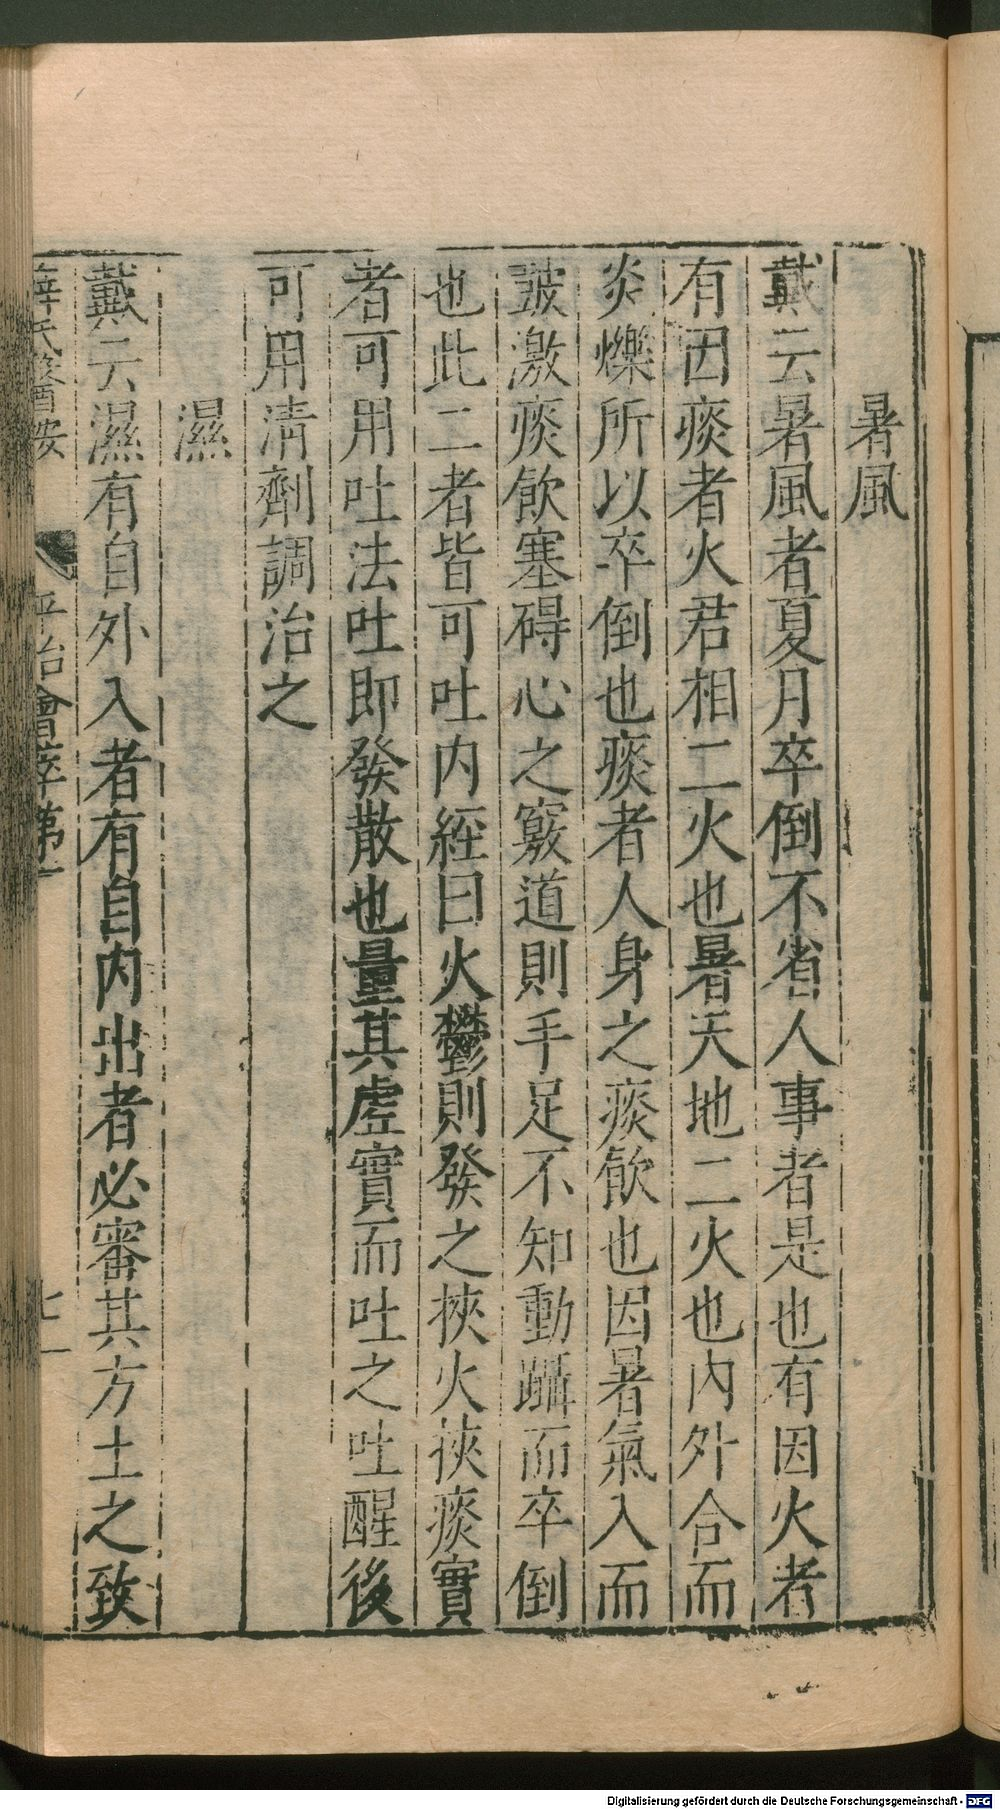 暑風
戴云暑風者夏月卒倒不省人事者是也有因火者
有因痰者火君相二火也暑天地二火也內外合而
炎爍所以卒倒也痰者人身之痰飲也因暑氣入而
皷激痰飲塞碍心之竅道則手足不知動躡而卒倒
也此二者皆可吐内經曰火鬱則發之挾火挾痰實
者可用吐法吐即發散也量其虛實而吐之吐醒後
可用清劑調治之
濕
戴云濕有自外入者有自内出者必審其方土之致
薛氏醫按 平治會萃第一 七一
Digitalisierung gefördert durch die Deutsche Forschungsgemeinschaft - DFG